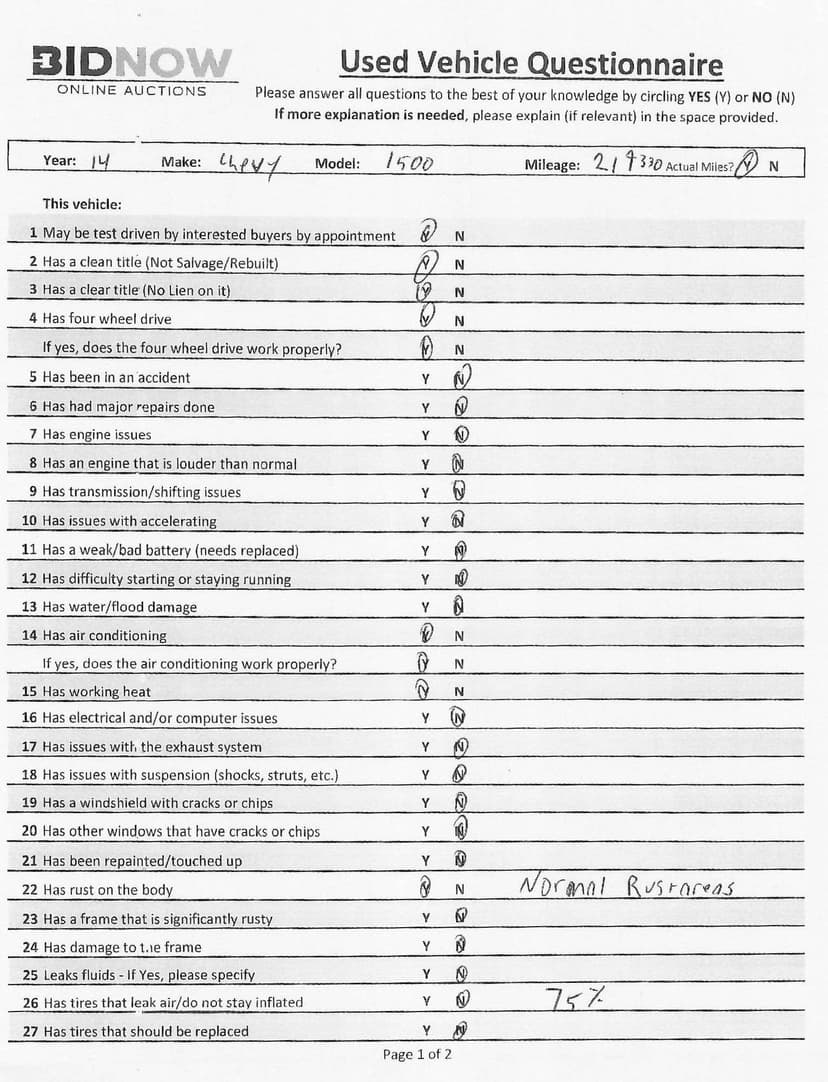 BIDNOW
ONLINE AUCTIONS
Used Vehicle Questionnaire
Please answer all questions to the best of your knowledge by circling YES (Y) or NO (N)
If more explanation is needed, please explain (if relevant) in the space provided.
Year: 14 Make: Chevy Model: 1500 Mileage: 219330 Actual Miles? Y N
This vehicle:
1 May be test driven by interested buyers by appointment Y N
2 Has a clean title (Not Salvage/Rebuilt) Y N
3 Has a clear title (No Lien on it) Y N
4 Has four wheel drive Y N
If yes, does the four wheel drive work properly? Y N
5 Has been in an accident Y N
6 Has had major repairs done Y N
7 Has engine issues Y N
8 Has an engine that is louder than normal Y N
9 Has transmission/shifting issues Y N
10 Has issues with accelerating Y N
11 Has a weak/bad battery (needs replaced) Y N
12 Has difficulty starting or staying running Y N
13 Has water/flood damage Y N
14 Has air conditioning Y N
If yes, does the air conditioning work properly? Y N
15 Has working heat Y N
16 Has electrical and/or computer issues Y N
17 Has issues with the exhaust system Y N
18 Has issues with suspension (shocks, struts, etc.) Y N
19 Has a windshield with cracks or chips Y N
20 Has other windows that have cracks or chips Y N
21 Has been repainted/touched up Y N
22 Has rust on the body Y N Normal Rust areas
23 Has a frame that is significantly rusty Y N
24 Has damage to the frame Y N
25 Leaks fluids - If Yes, please specify Y N
26 Has tires that leak air/do not stay inflated Y N 75%
27 Has tires that should be replaced Y N
Page 1 of 2